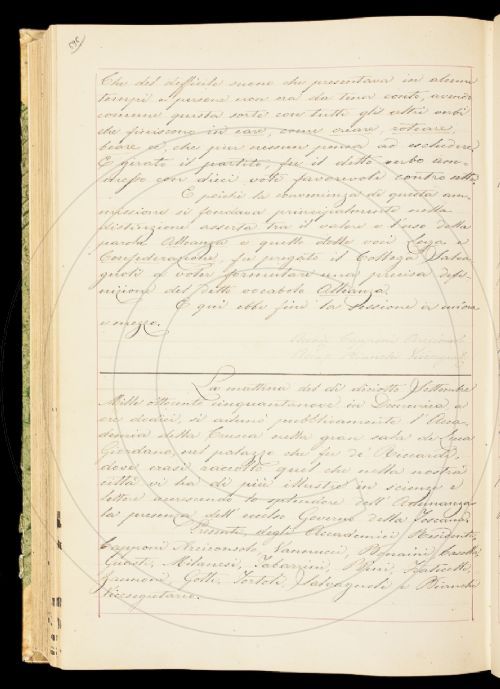 Che del difficile suono che presentava in alcuni
tempi e persone non era da tener conto, avendo
comune questa sorte con tutti gli altri verbi
che finiscono in iare, come criare, roteare,
beare ec. che pur nessun pensa ad escludere.
E girato il partito, fu il detto verbo am-
messo con dieci voti favorevoli contro sette.
E poichè la convenienza di questa am-
missione si fondava principalmente nella
distinzione asserta tra il valore e l'uso della
parola Alleanza e quello delle voci Lega e
Confederazione, fu pregato il Collega Salva-
gnoli a voler formulare una precisa defi-
nizione del detto vocabolo Alleanza.
E qui ebbe fine la sessione a un'ora
e mezzo.
Capponi Arciconsolo
Bianchi Vicesegr.
La mattina del dì diciotto Settembre
Mille ottocento cinquantanove in Domenica a
ore dodici, si adunò pubblicamente l'Acca-
demia della Crusca nella gran sala di Luca
Giordano, nel palazzo che fu de' Riccardi,
dove erasi raccolto quel che nella nostra
città vi ha di più illustre in scienze e
lettere accrescendo lo splendore dell'Adunanza
la presenza dell'eccelso Governo della Toscana.
Presenti, degli Accademici Residenti,
Capponi Arciconsolo, Vannucci, Casella,
Guasti, Milanesi, Tabarrini, Bini,
Gelli, Tortoli, Salvagnoli e Bianchi
Vicesegretario.